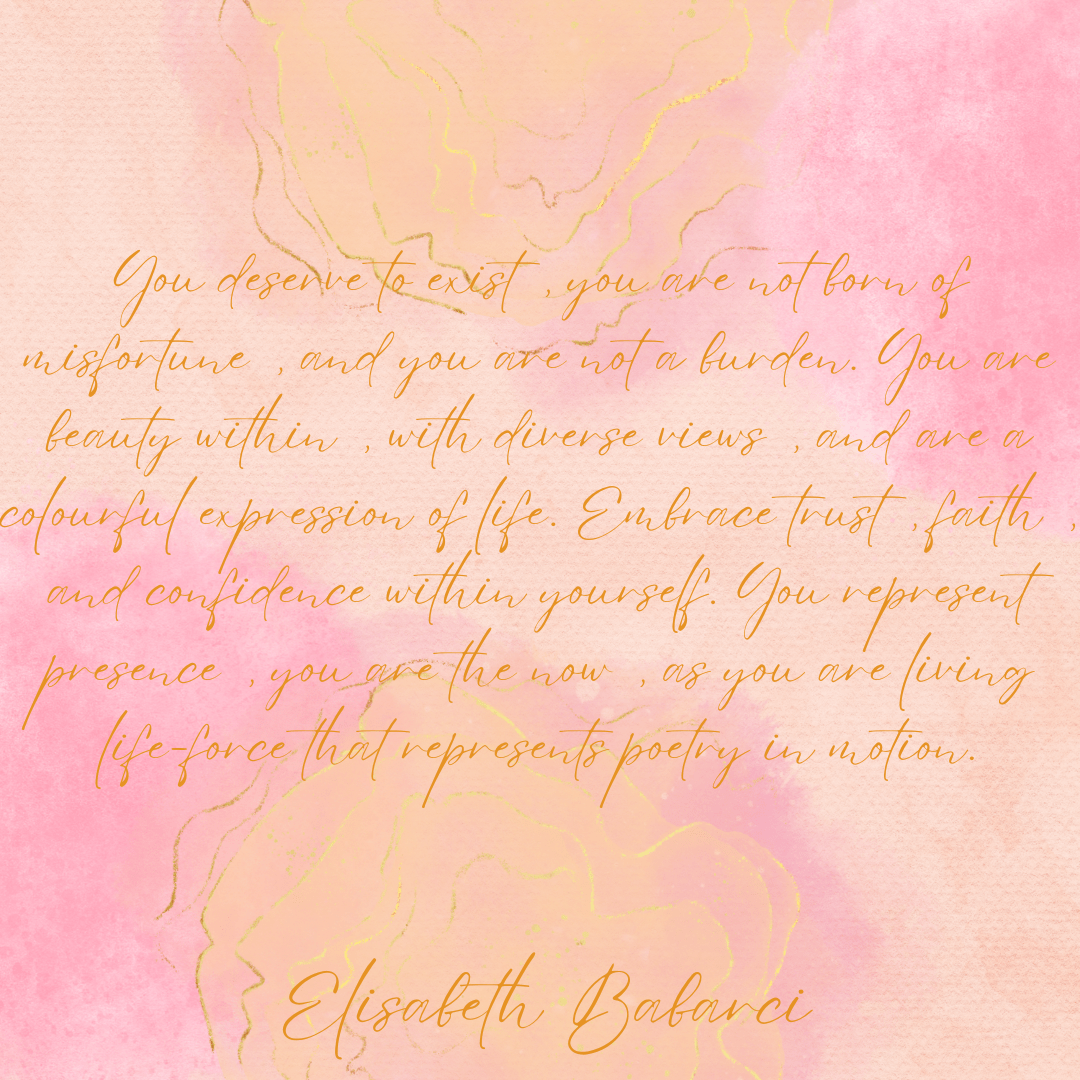 You deserve to exist , you are not born of
misfortune , and you are not a burden. You are
beauty within , with diverse views , and are a
colourful expression of life. Embrace trust , faith ,
and confidence within yourself. You represent
presence , you are the now , as you are living
life-force that represents poetry in motion.
Elisabeth Babarci